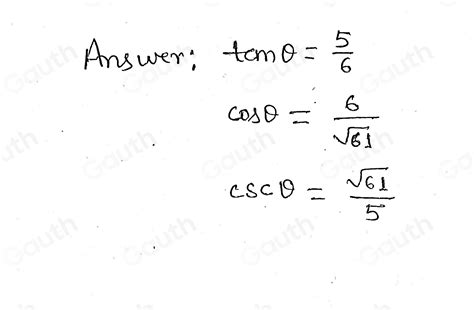 Answer: tanθ = 5/6
cosθ = 6/√61
cscθ = √61/5
Gauth